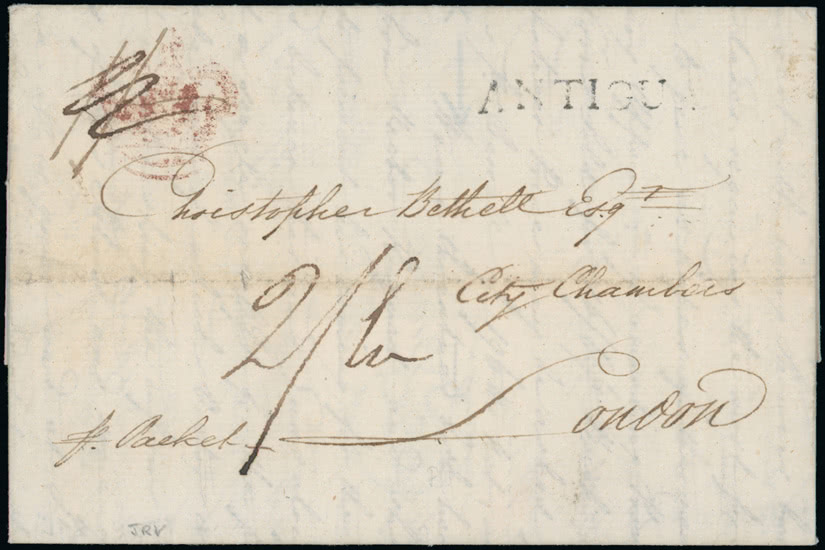 ANTIGU
Christopher Bethell Esqr
City Chambers
2/
London
p. Packet
JRV